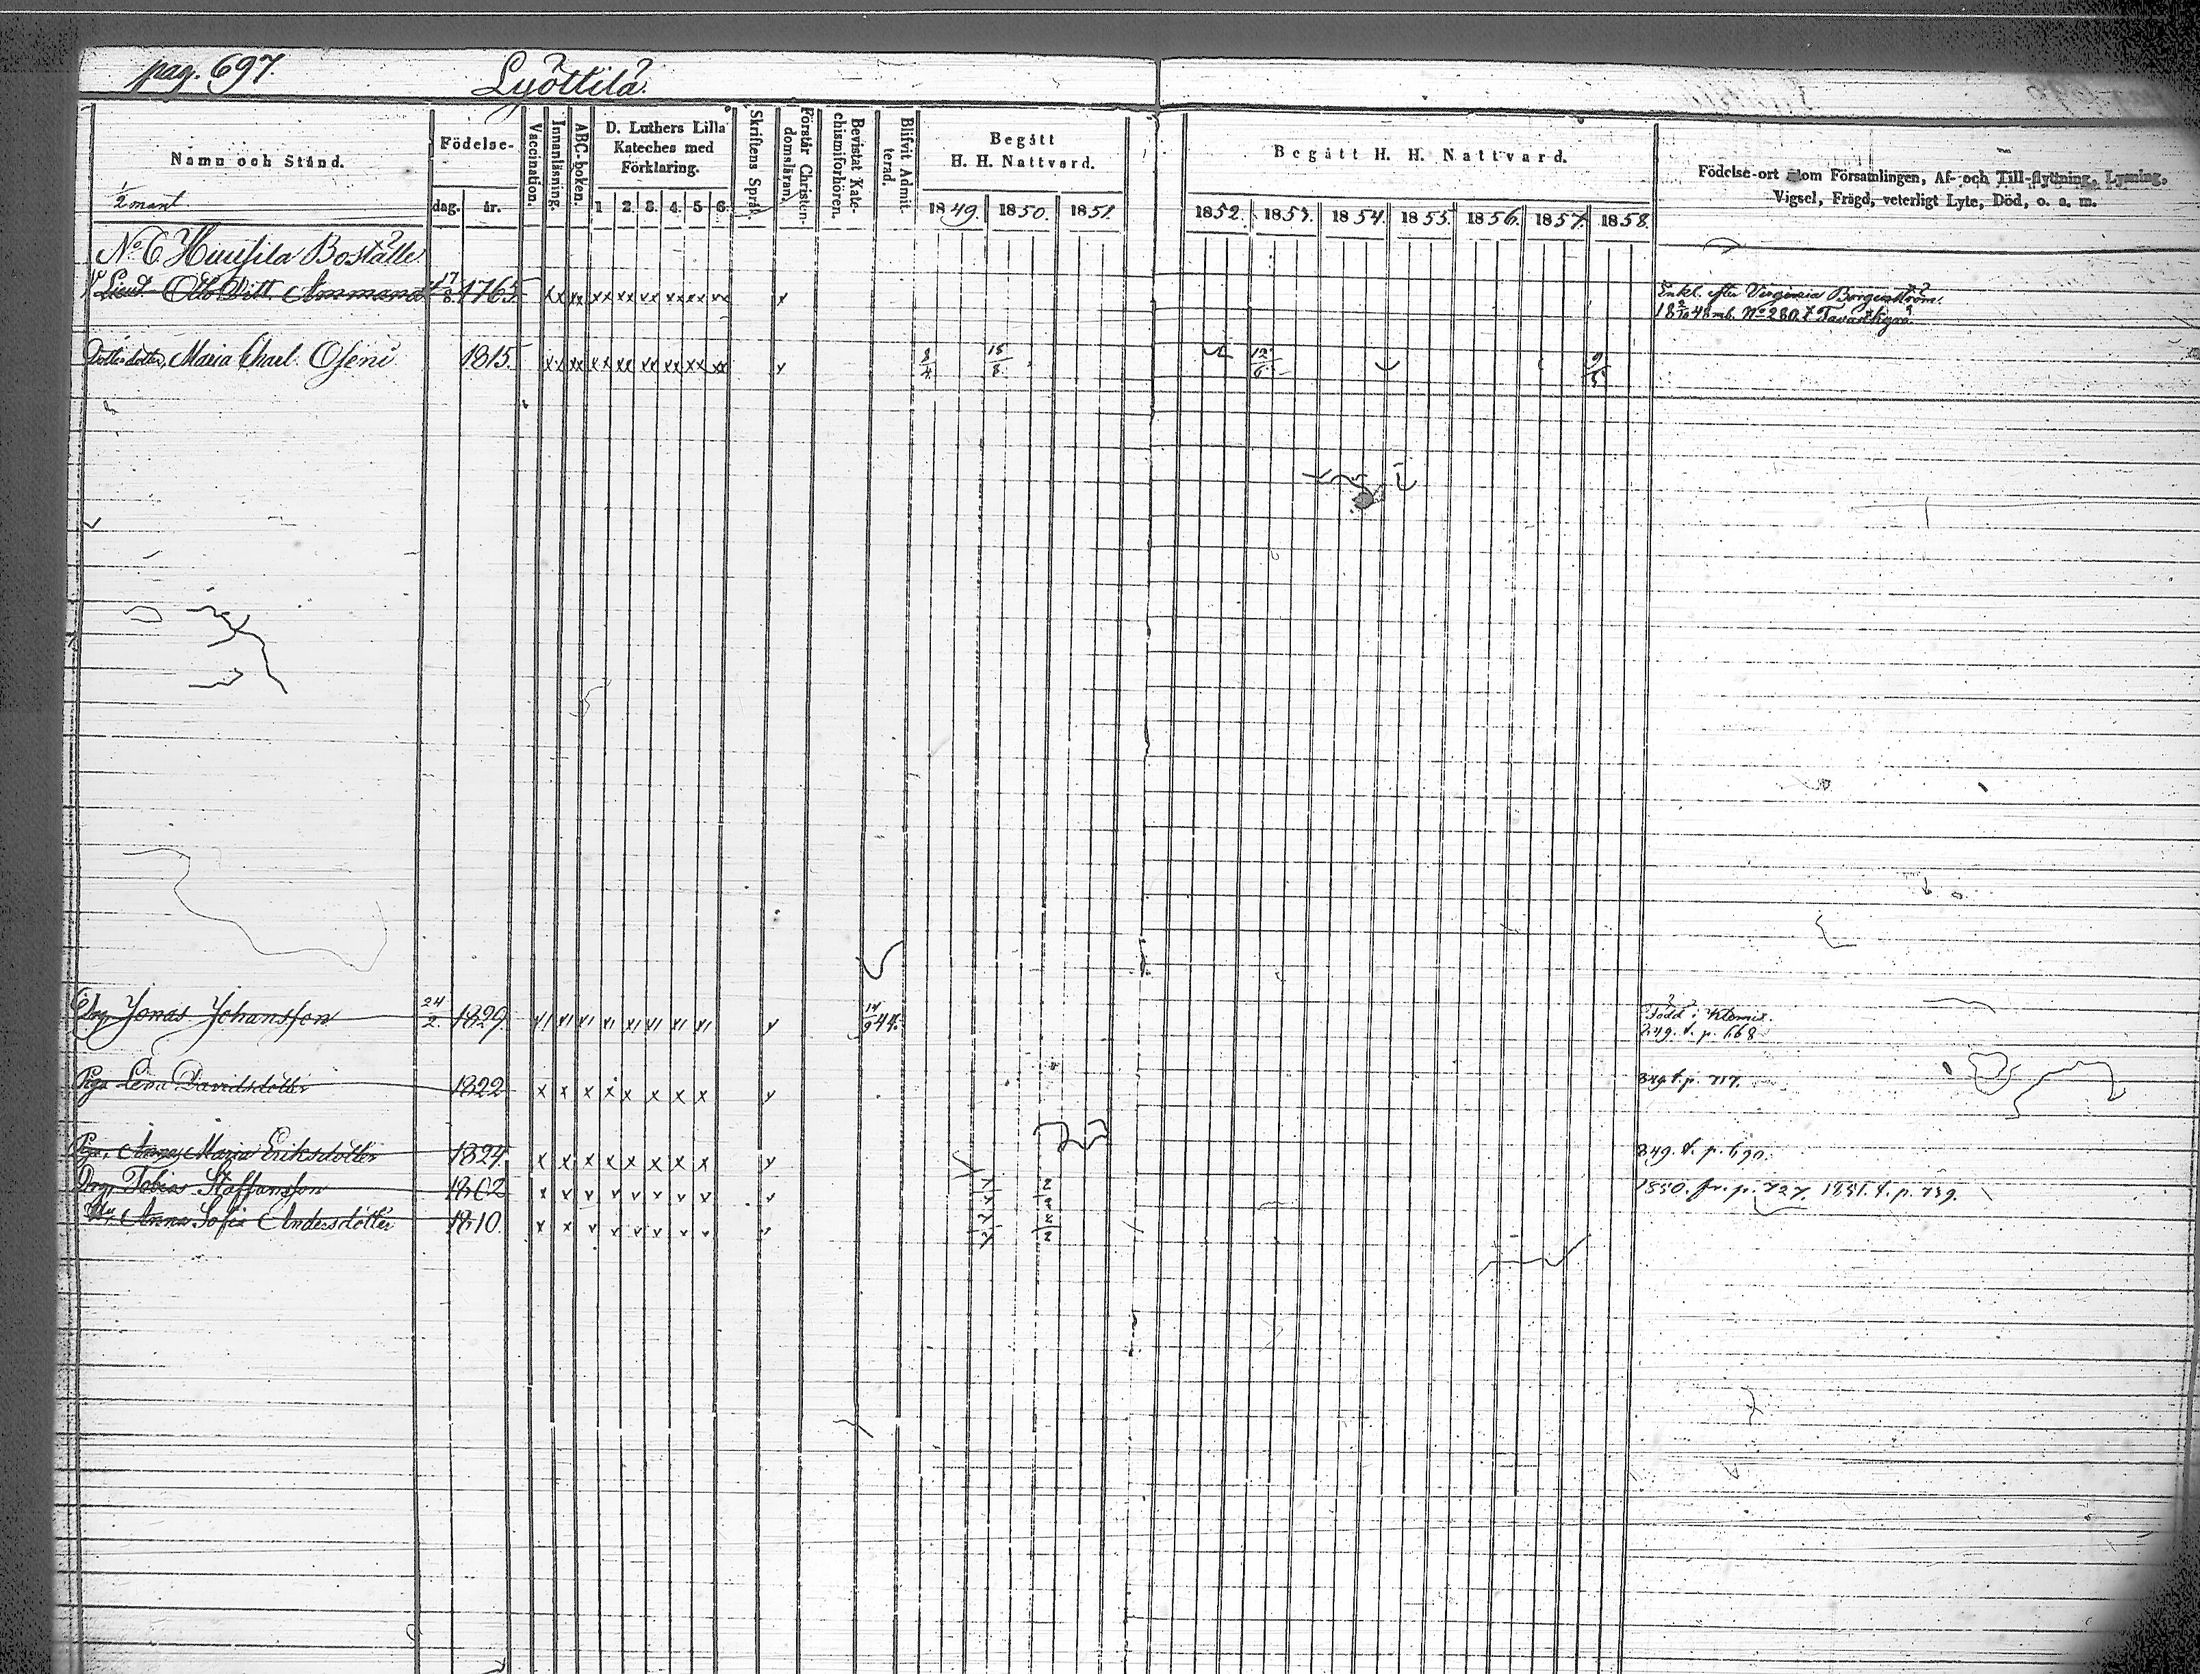 pag. 697.
Lyöttilä.
Namn och Stånd.
Födelse-
dag. år.
Vaccination.
Innanläsning.
ABC-boken.
D. Luthers Lilla
Kateches med
Förklaring.
1 2. 3. 4. 5 6.
Skriftens Språk.
Förstår Christen-
domsläran.
Bevistat Kate-
chismiförhören.
Blifvit Admit-
terad.
Begått
H. H. Nattvard.
1849. 1850. 1851.
Begått H. H. Nattvard.
1852. 1853. 1854. 1855. 1856. 1857. 1858.
Födelse-ort utom Församlingen, Af- och Till-flyttning, Lysning,
Vigsel, Frägd, veterligt Lyte, Död, o. s. m.
1/2 mant
No 6 Boställe
Lieut. Otto Ammond 17/8 1765 x x x x x x x x x
Enkl. efter Borgenström.
No 280.
Dotterdotter, Maria Charl. 1815. x x x x x x x x x 15/8 12/6 9/5
Drg Jonas Johansson 24/2. 1829. 14/9 44.
Född i
849. t. p. 668
Pig. Lena Davidsdotter 1822 x x x x x x x x
849 t. p. 717.
Pig. Anna Maria Eriksdotter 1824 x x x x x x x x
849. t. p. 690.
Drg. Tobias Staffansson 1802
1850. fr. p. 727. 1851. t. p. 739.
Anna Sofia Andersdotter 1810.